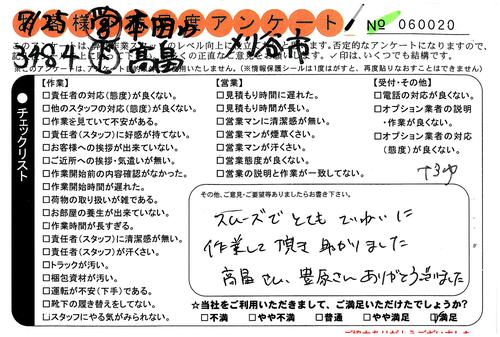 様 度アンケート
№ 060020
8/25 学 本田
3484 高畠 刈谷市
【作業】
□責任者の対応(態度)が良くない。
□他のスタッフの対応(態度)が良くない。
□作業を見ていて不安がある。
□責任者(スタッフ)に好感が持てない。
□お客様への挨拶が出来ていない。
□ご近所への挨拶・気遣いが無い。
□作業開始前の内容確認がなかった。
□作業開始時間が遅れた。
□荷物の取り扱いが雑である。
□お部屋の養生が出来ていない。
□作業時間が長すぎる。
□責任者(スタッフ)に清潔感が無い。
□責任者(スタッフ)が汗くさい。
□トラックが汚い。
□梱包資材が汚い。
□運転が不安(下手)である。
□靴下の履き替えをしてない。
□スタッフにやる気がみられない。
【営業】
□見積もり時間に遅れた。
□見積もり時間が長い。
□営業マンに清潔感が無い。
□営業マンが煙草くさい。
□営業マンが汗くさい。
□営業態度が良くない。
□営業の説明と作業が一致してない。
【受付・その他】
□電話の対応が良くない。
□オプション業者の説明
・作業が良くない。
□オプション業者の対応
(態度)が良くない。
●チェックリスト
その他、ご意見・ご要望等ありましたらお書き下さい。
スムーズでとても ていねいに
作業して頂き 助かりました
高畠さん、豊原さん ありがとう ございました
☆当社をご利用いただきまして、ご満足いただけたでしょうか?
□不満 □やや不満 □普通 □やや満足 □満足